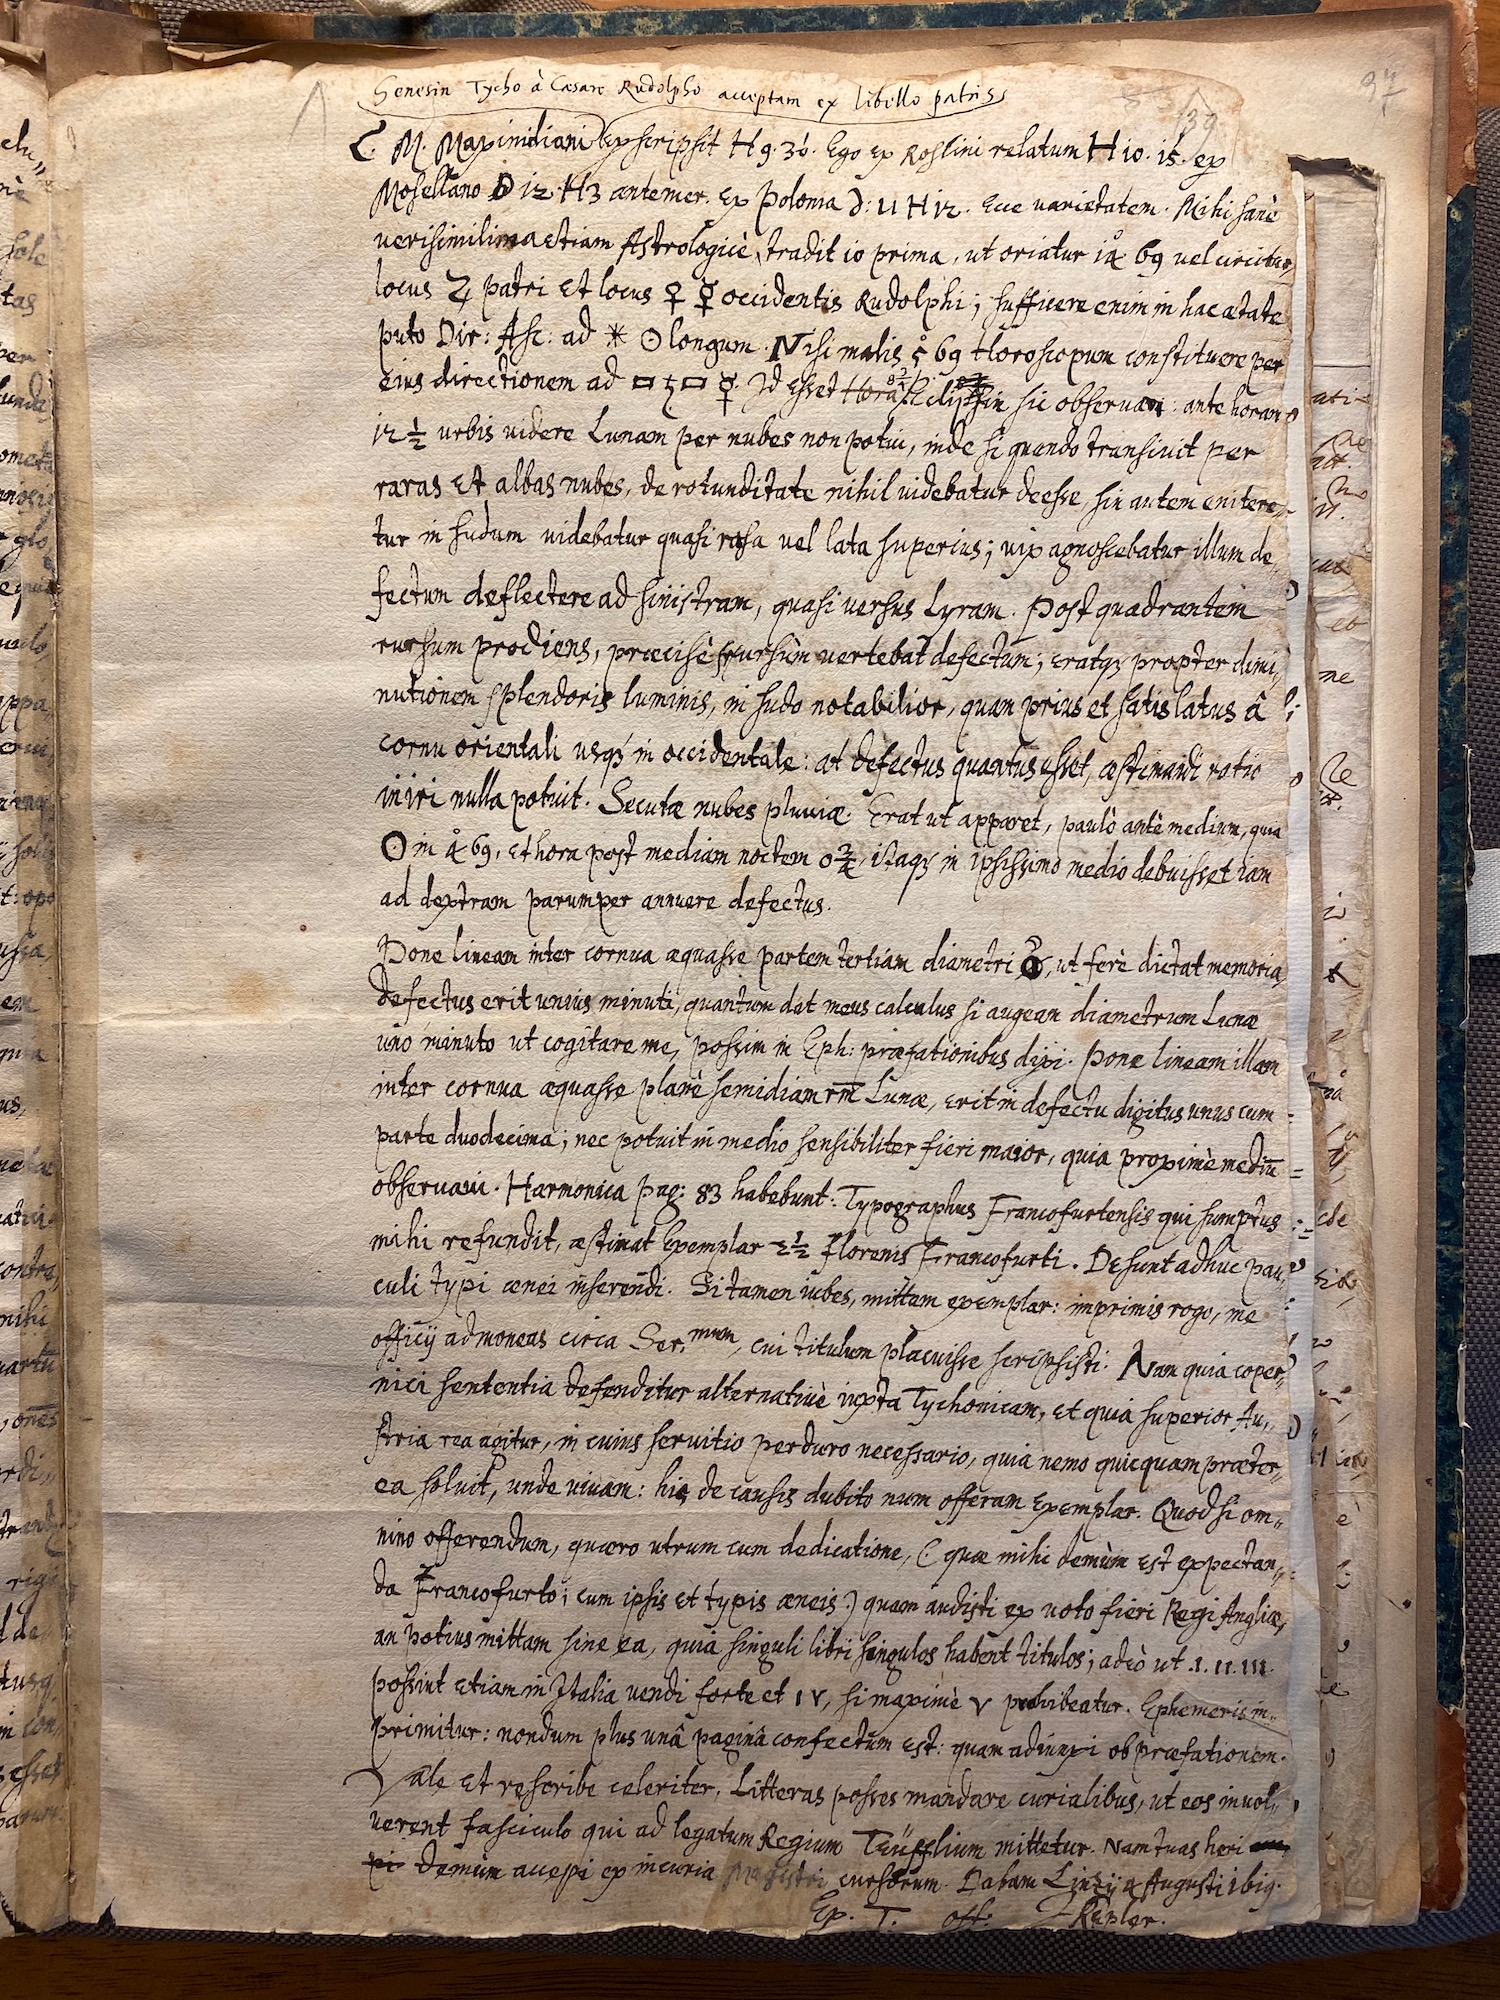 Genesin Tycho à Cæsare Rudolpho acceptam ex libello patris
C. M. Maximiliani exscripsit H 9. 30. Ego ex Roslini relatum H 10. 15. ex
Mosellano D 12. H 3 antemer. Ex Polonia d: 11 H 12. Ecce varietatem. Mihi sanè
verisimilima etiam Astrologicè, tradit io prima, ut oriatur 14° 69 vel circiter
locus ♃ patri et locus ♀ ☿ occidentis Rudolphi; sufficere enim in hac ætate
puto Dir: Asc: ad ✶ ☉ longum. Nisi malis 69 Horoscopum constituere per
eius directionem ad □ ♄ □ ☿. Id esset Eclipsin sic observavi: ante horam
12 ½ urbis videre Lunam per nubes non potui, inde si quando transivit per
raras et albas nubes, de rotunditate nihil videbatur deesse, sin autem enitere-
tur in sudum videbatur quasi rasa vel lata superius; vix agnoscebatur illum de„
fectum deflectere ad sinistram, quasi versus Lyram. Post quadrantem
rursum prodiens, præcisè sursùm vertebat defectum; eratq3 propter dimi„
nutionem splendoris luminis, in sudo notabilior, quam prius et satis latus â
cornu orientali usq3 in occidentale: at defectus quantus esset, æstimandi ratio
iniri nulla potuit. Secutæ nubes pluviæ. Erat ut apparet, paulò antè medium, quia
☉ in 4° 69, et hora post mediam noctem 0¾, itaq3 in ipsissimo medio debuisset iam
ad dextram parumper annuere defectus.
Pone lineam inter cornua æquasse partem tertiam diametri, ut ferè dictat memoria,
defectus erit unius minuti, quantum dat meus calculus si augeam diametrum Lunæ
uno minuto ut cogitare me, possim in Eph: præfationibus dixi. Pone lineam illam
inter cornua æquasse planè semidiamrm̄ Lunæ, erit in defectu digitus unus cum
parte duodecima; nec potuit in medio sensibiliter fieri maior, quia proximè mediū
observavi. Harmonica pag: 83 habebunt: Typographus Francofurtensis qui sumptus
mihi refundit, æstimat Exemplar 2½ Florenis Francofurti. Desunt adhuc pau„
culi typi ænei inserendi. Si tamen iubes, mittam exemplar: imprimis rogo, me
officij admoneas circa Ser.mum, cui titulum placuisse scripsisti. Nam quia coper„
nici sententia defenditur alternativè iuxta Tychonicam, et quia superior Au„
stria rea agitur, in cuius servitio perduro necessario, quia nemo quicquam præter„
ea solvit, unde vivam: his de causis dubito num offeram Exemplar. Quod si om„
nino offerendum, quæro utrum cum dedicatione, (quæ mihi demùm est expectan„
da Francofurto; cum ipsis et typis æneis) quam audisti ex voto fieri Regi Angliæ,
an potius mittam sine ea, quia singuli libri singulos habent titulos; adeò ut .I. II. III.
possint etiam in Italia vendi forte et IV, si maximè V prohibeatur. Ephemeris im„
primitur: nondum plus unâ paginâ confectum est: quam adiunxi ob præfationem.
Vale et rescribe celeriter, Litteras posses mandare curialibus, ut eos invol„
verent fasciculo qui ad legatum Regium Teüfflium mittetur. Nam tuas heri
demùm accepi ex incuria Magistri cursorum. Dabam Lintzij 4 Augusti 1619.
Ex. T. off. J Kepler.